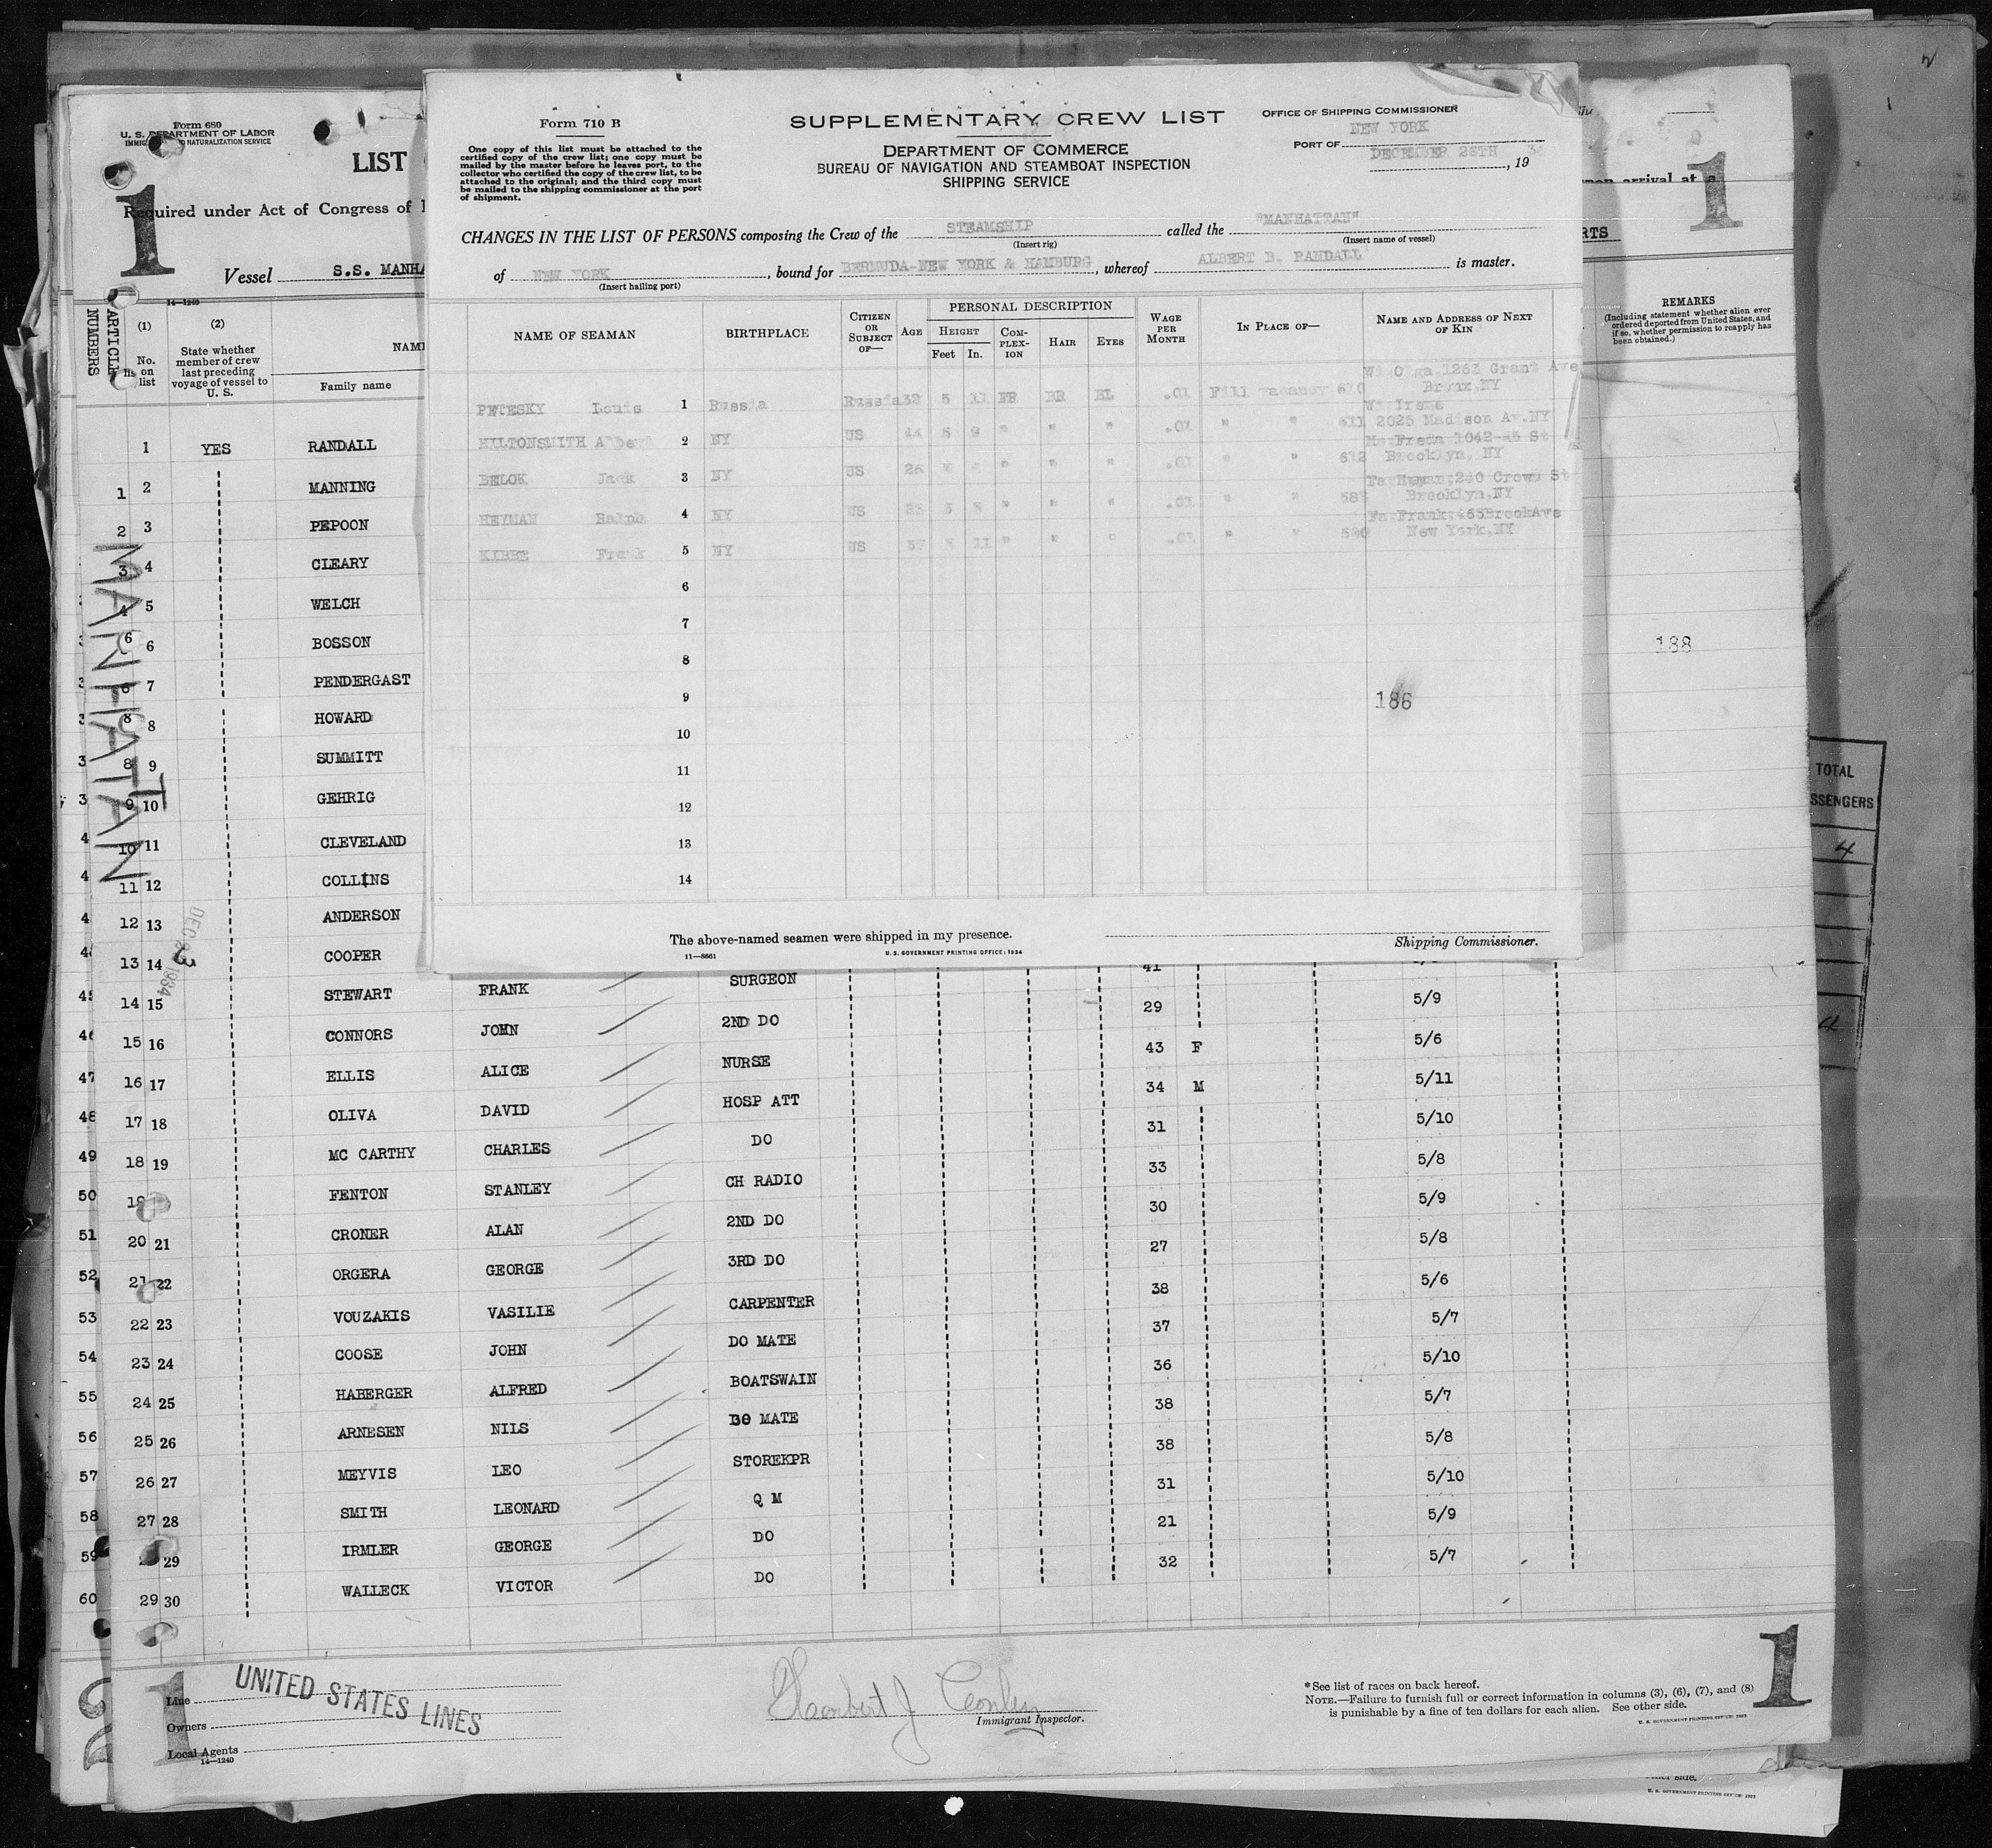 Form 710 B
SUPPLEMENTARY CREW LIST
OFFICE OF SHIPPING COMMISSIONER
NEW YORK
PORT OF
DECEMBER 28TH
, 19
One copy of this list must be attached to the
certified copy of the crew list; one copy must be
mailed by the master before he leaves port, to the
collector who certified the copy of the crew list, to be
attached to the original; and the third copy must
be mailed to the shipping commissioner at the port
of shipment.
DEPARTMENT OF COMMERCE
BUREAU OF NAVIGATION AND STEAMBOAT INSPECTION
SHIPPING SERVICE
CHANGES IN THE LIST OF PERSONS composing the Crew of the STEAMSHIP called the "MANHATTAN"
(Insert rig) (Insert name of vessel)
of NEW YORK, bound for BERMUDA-NEW YORK & HAMBURG, whereof ALBERT B. RANDALL is master.
(Insert hailing port)
NAME OF SEAMAN BIRTHPLACE CITIZEN OR SUBJECT OF— AGE PERSONAL DESCRIPTION HEIGHT Feet In. COMPLEXION HAIR EYES WAGE PER MONTH IN PLACE OF— NAME AND ADDRESS OF NEXT OF KIN
PETESKY Louis 1 Russia Russia 32 5 11 FR BR BL .01 Fill vacancy 610 Wi Olga 1263 Grant Ave Bronx, NY
HILTONSMITH Albert 2 NY US 44 5 9 " " " .01 " " 611 Wi Irene 2025 Madison Av. NY
BELOK Jack 3 NY US 26 " " " .01 " " 612 Freda 1042-45 St Brooklyn, NY
HEYMAN Ralph 4 NY US 23 5 5 " " " .01 " " Fa Hyman 240 Crown St Brooklyn, NY
KIBBE Frank 5 NY US 37 5 11 " " " .01 " " 540 Fa Frank 465 Brook Ave New York, NY
6
7
8
9 186
10
11
12
13
14
The above-named seamen were shipped in my presence.
Shipping Commissioner.
11—8661
U. S. GOVERNMENT PRINTING OFFICE: 1934
Form 680
U. S. DEPARTMENT OF LABOR
NATURALIZATION SERVICE
LIST
1
1
upon arrival at a
Required under Act of Congress of
Vessel S.S. MANHA
RTS
14—1240
ARTICLE NUMBERS
(1) No. on list
(2) State whether member of crew last preceding voyage of vessel to U. S.
NAME
Family name
REMARKS
(Including statement whether alien ever
ordered deported from United States, and
if so, whether permission to reapply has
been obtained.)
MANHATTAN
DEC 23 1934
1 YES RANDALL
1 2 MANNING
2 3 PEPOON
3 4 CLEARY
4 5 WELCH
6 6 BOSSON 188
6 7 PENDERGAST
8 8 HOWARD
8 9 SUMMITT
9 10 GEHRIG
10 11 CLEVELAND
11 12 COLLINS
12 13 ANDERSON
13 14 COOPER 41
45 14 15 STEWART FRANK SURGEON 29 5/9
46 15 16 CONNORS JOHN 2ND DO 43 F 5/6
47 16 17 ELLIS ALICE NURSE 34 M 5/11
48 17 18 OLIVA DAVID HOSP ATT 31 5/10
49 18 19 MC CARTHY CHARLES DO 33 5/8
50 19 FENTON STANLEY CH RADIO 30 5/9
51 20 21 CRONER ALAN 2ND DO 27 5/8
52 21 22 ORGERA GEORGE 3RD DO 38 5/6
53 22 23 VOUZAKIS VASILIE CARPENTER 37 5/7
54 23 24 COOSE JOHN DO MATE 36 5/10
55 24 25 HABERGER ALFRED BOATSWAIN 38 5/7
56 25 26 ARNESEN NILS DO MATE 38 5/8
57 26 27 MEYVIS LEO STOREKPR 31 5/10
58 27 28 SMITH LEONARD Q M 21 5/9
59 29 IRMLER GEORGE DO 32 5/7
60 29 30 WALLECK VICTOR DO
TOTAL
SSENGERS
4
4
1
2
1
Line UNITED STATES LINES
Owners
Local Agents
14—1240
Immigrant Inspector.
* See list of races on back hereof.
NOTE.—Failure to furnish full or correct information in columns (3), (6), (7), and (8)
is punishable by a fine of ten dollars for each alien. See other side.
U. S. GOVERNMENT PRINTING OFFICE: 1933
side.